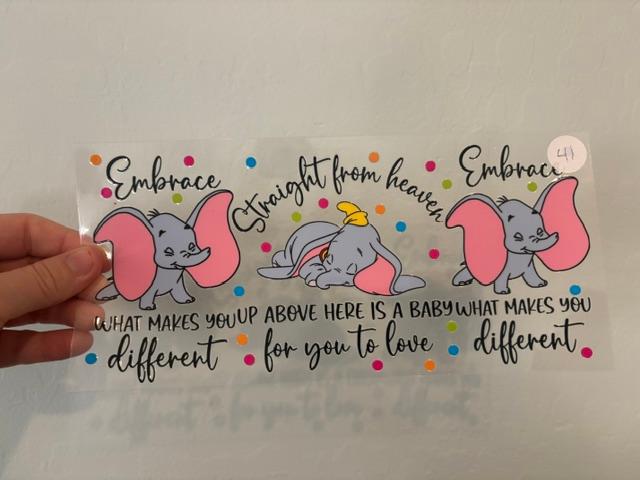 Embrace
WHAT MAKES YOU
different
Straight from heaven
UP ABOVE HERE IS A BABY
for you to love
Embrace
WHAT MAKES YOU
different
41